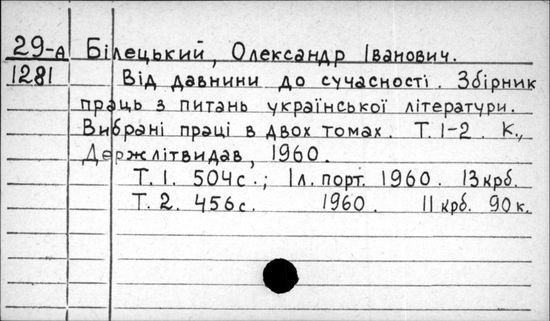 29-А Білецький, Олександр Іванович.
1281 Від давнини до сучасності. Збірник
праць з питань української літератури.
Вибрані праці в двох томах. Т. 1-2. К.,
Держлітвидав, 1960.
Т. 1. 504 с.; 1 л. порт. 1960. 13 крб.
Т. 2. 456 с. 1960. 11 крб. 90 к.